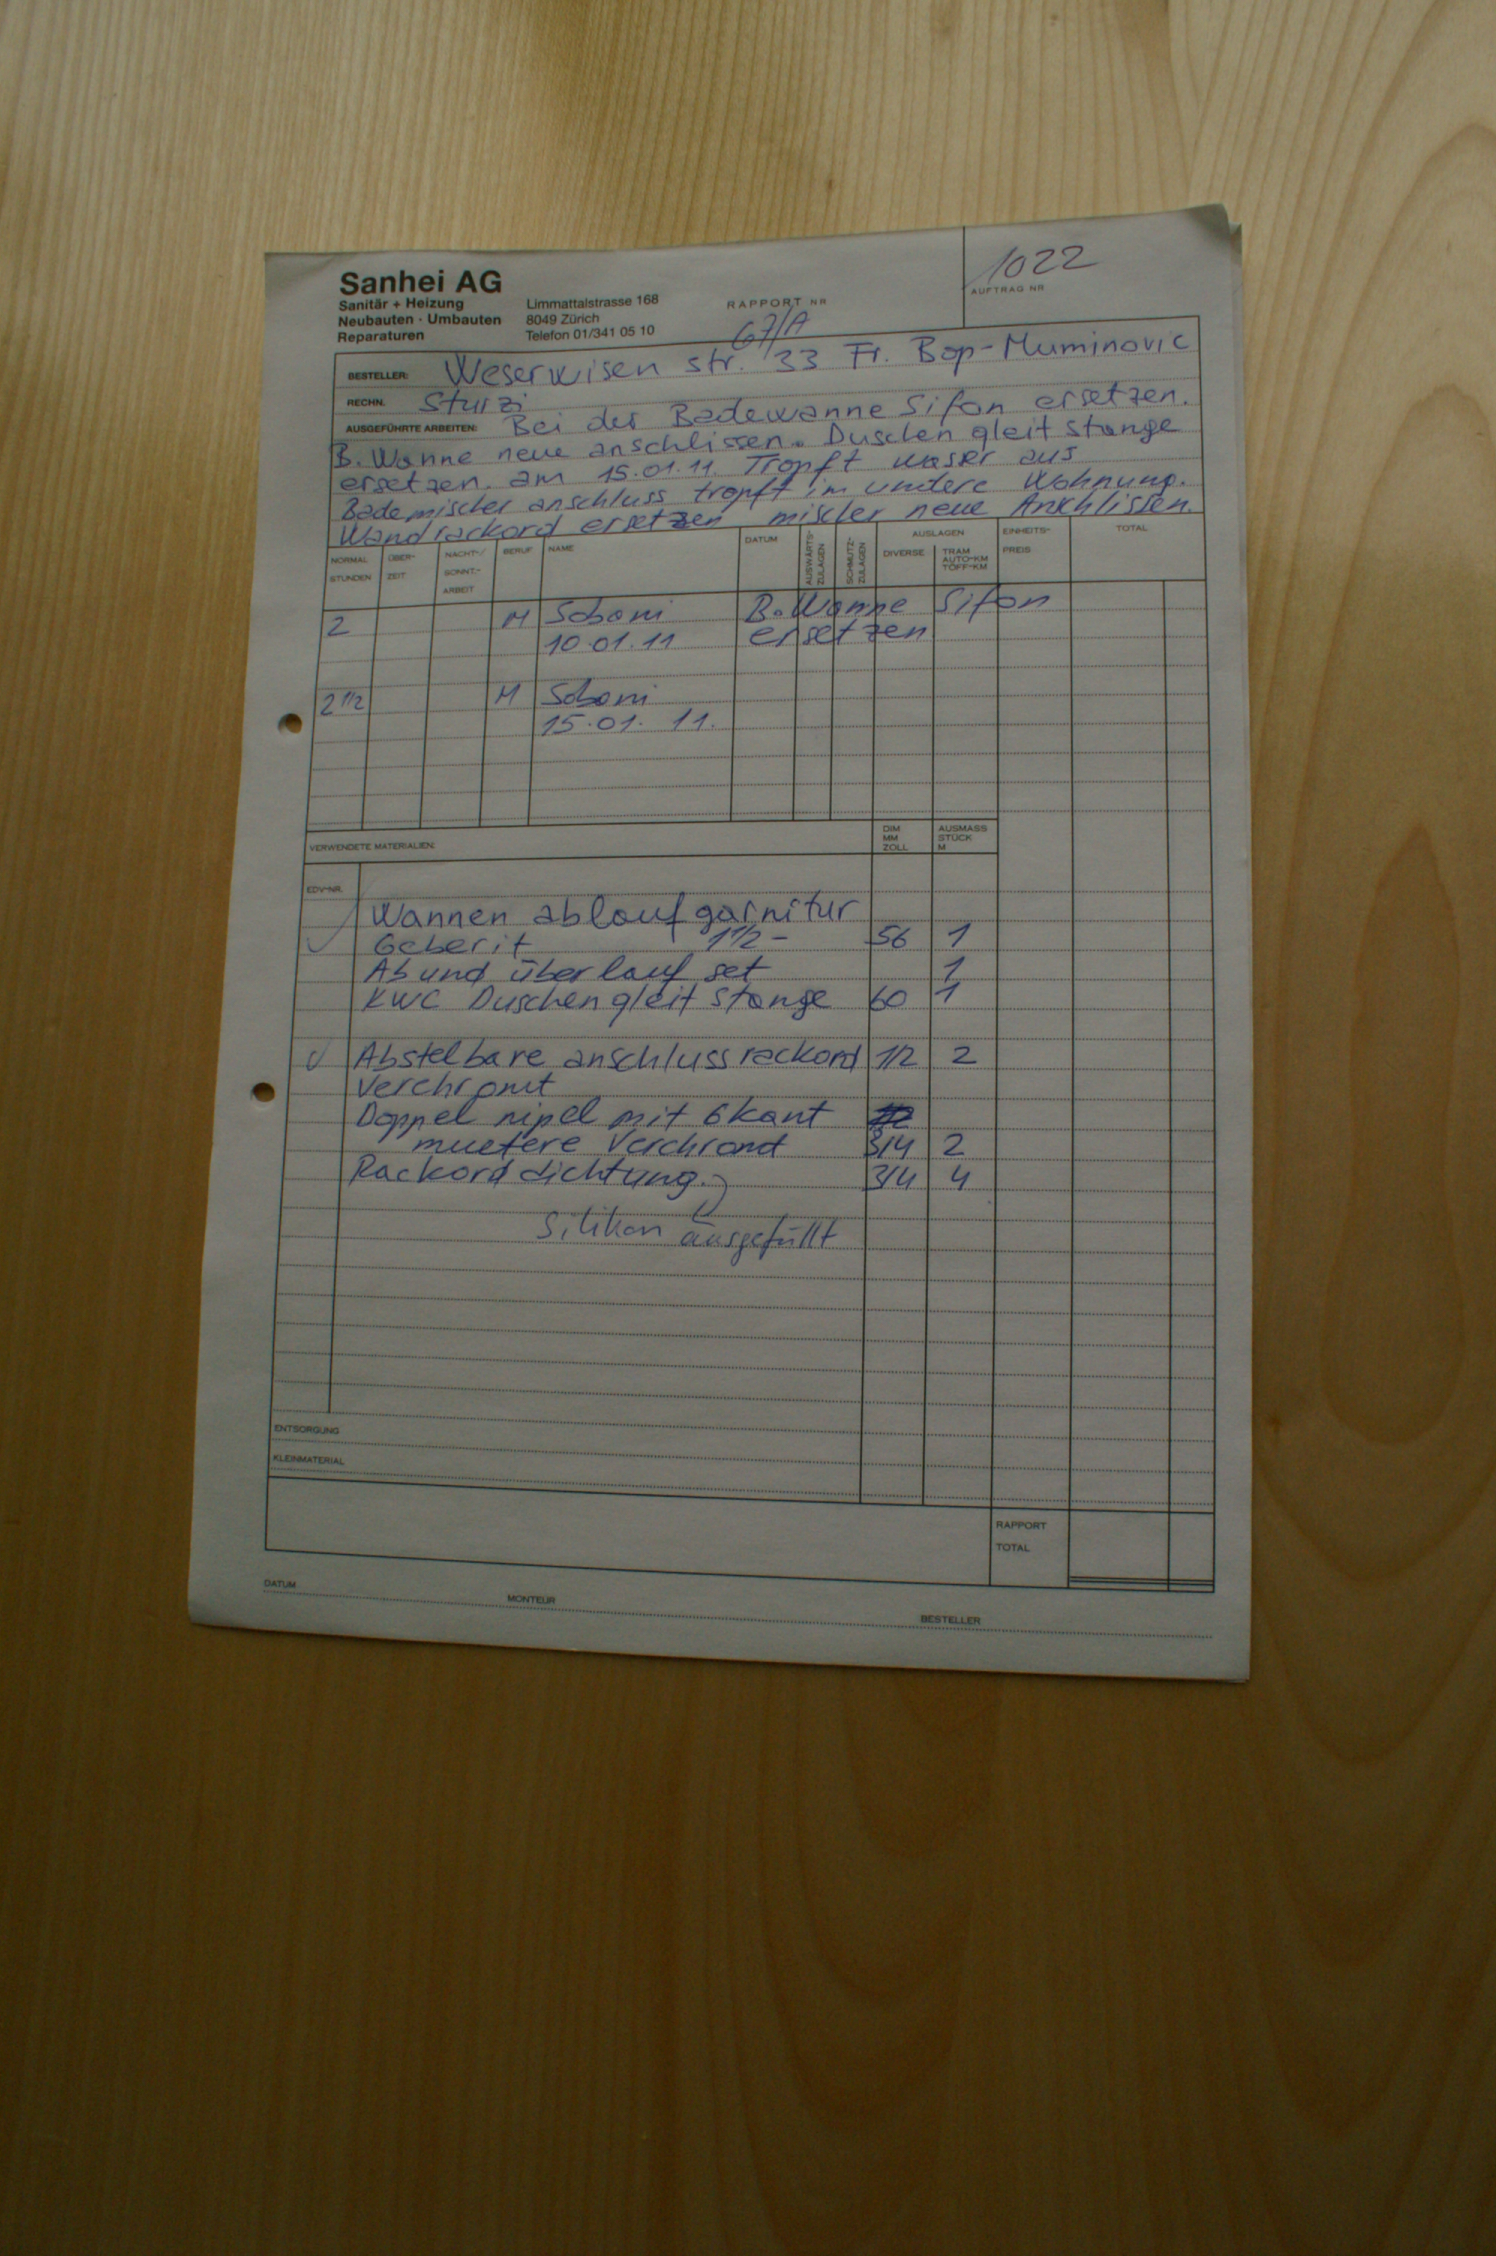 Sanhei AG
Sanitär + Heizung
Neubauten · Umbauten
Reparaturen
Limmattalstrasse 168
8049 Zürich
Telefon 01/341 05 10
RAPPORT NR
67/A
1022
AUFTRAG NR
BESTELLER: Weserwisen str. 33 Fr. Bop-Muminovic
RECHN. Sturzi
AUSGEFÜHRTE ARBEITEN: Bei der Badewanne Sifon ersetzen.
B. Wanne neue anschlissen. Duschen gleit stange
ersetzen. am 15.01.11. Tropft waser aus
Bademischer anschluss tropft im undere Wohnung.
Wandrackord ersetzen mischer neue Anschlissen.
NORMAL STUNDEN ÜBER-ZEIT NACHT-/ SONNT.-ARBEIT BERUF NAME DATUM AUSWÄRTS-ZULAGEN SCHMUTZ-ZULAGEN AUSLAGEN DIVERSE TRAM AUTO-KM TÖFF-KM EINHEITS-PREIS TOTAL
2 M Saboni B. Wanne Sifon
10.01.11 ersetzen
2 1/2 M Saboni
15.01.11.
VERWENDETE MATERIALIEN: DIM MM ZOLL AUSMASS STÜCK M
EDV-NR.
Wannen ablauf garnitur
Geberit 1 1/2 - 56 1
Ab und überlauf set 1
KWC Duschen gleit stange 60 1
Abstelbare anschluss rackord 1/2 2
Verchromt
Doppel nipel mit 6kant
muetere Verchromt 3/4 2
Rackord dichtung. 3/4 4
Silikon ausgefüllt
ENTSORGUNG
KLEINMATERIAL
RAPPORT
TOTAL
DATUM MONTEUR BESTELLER